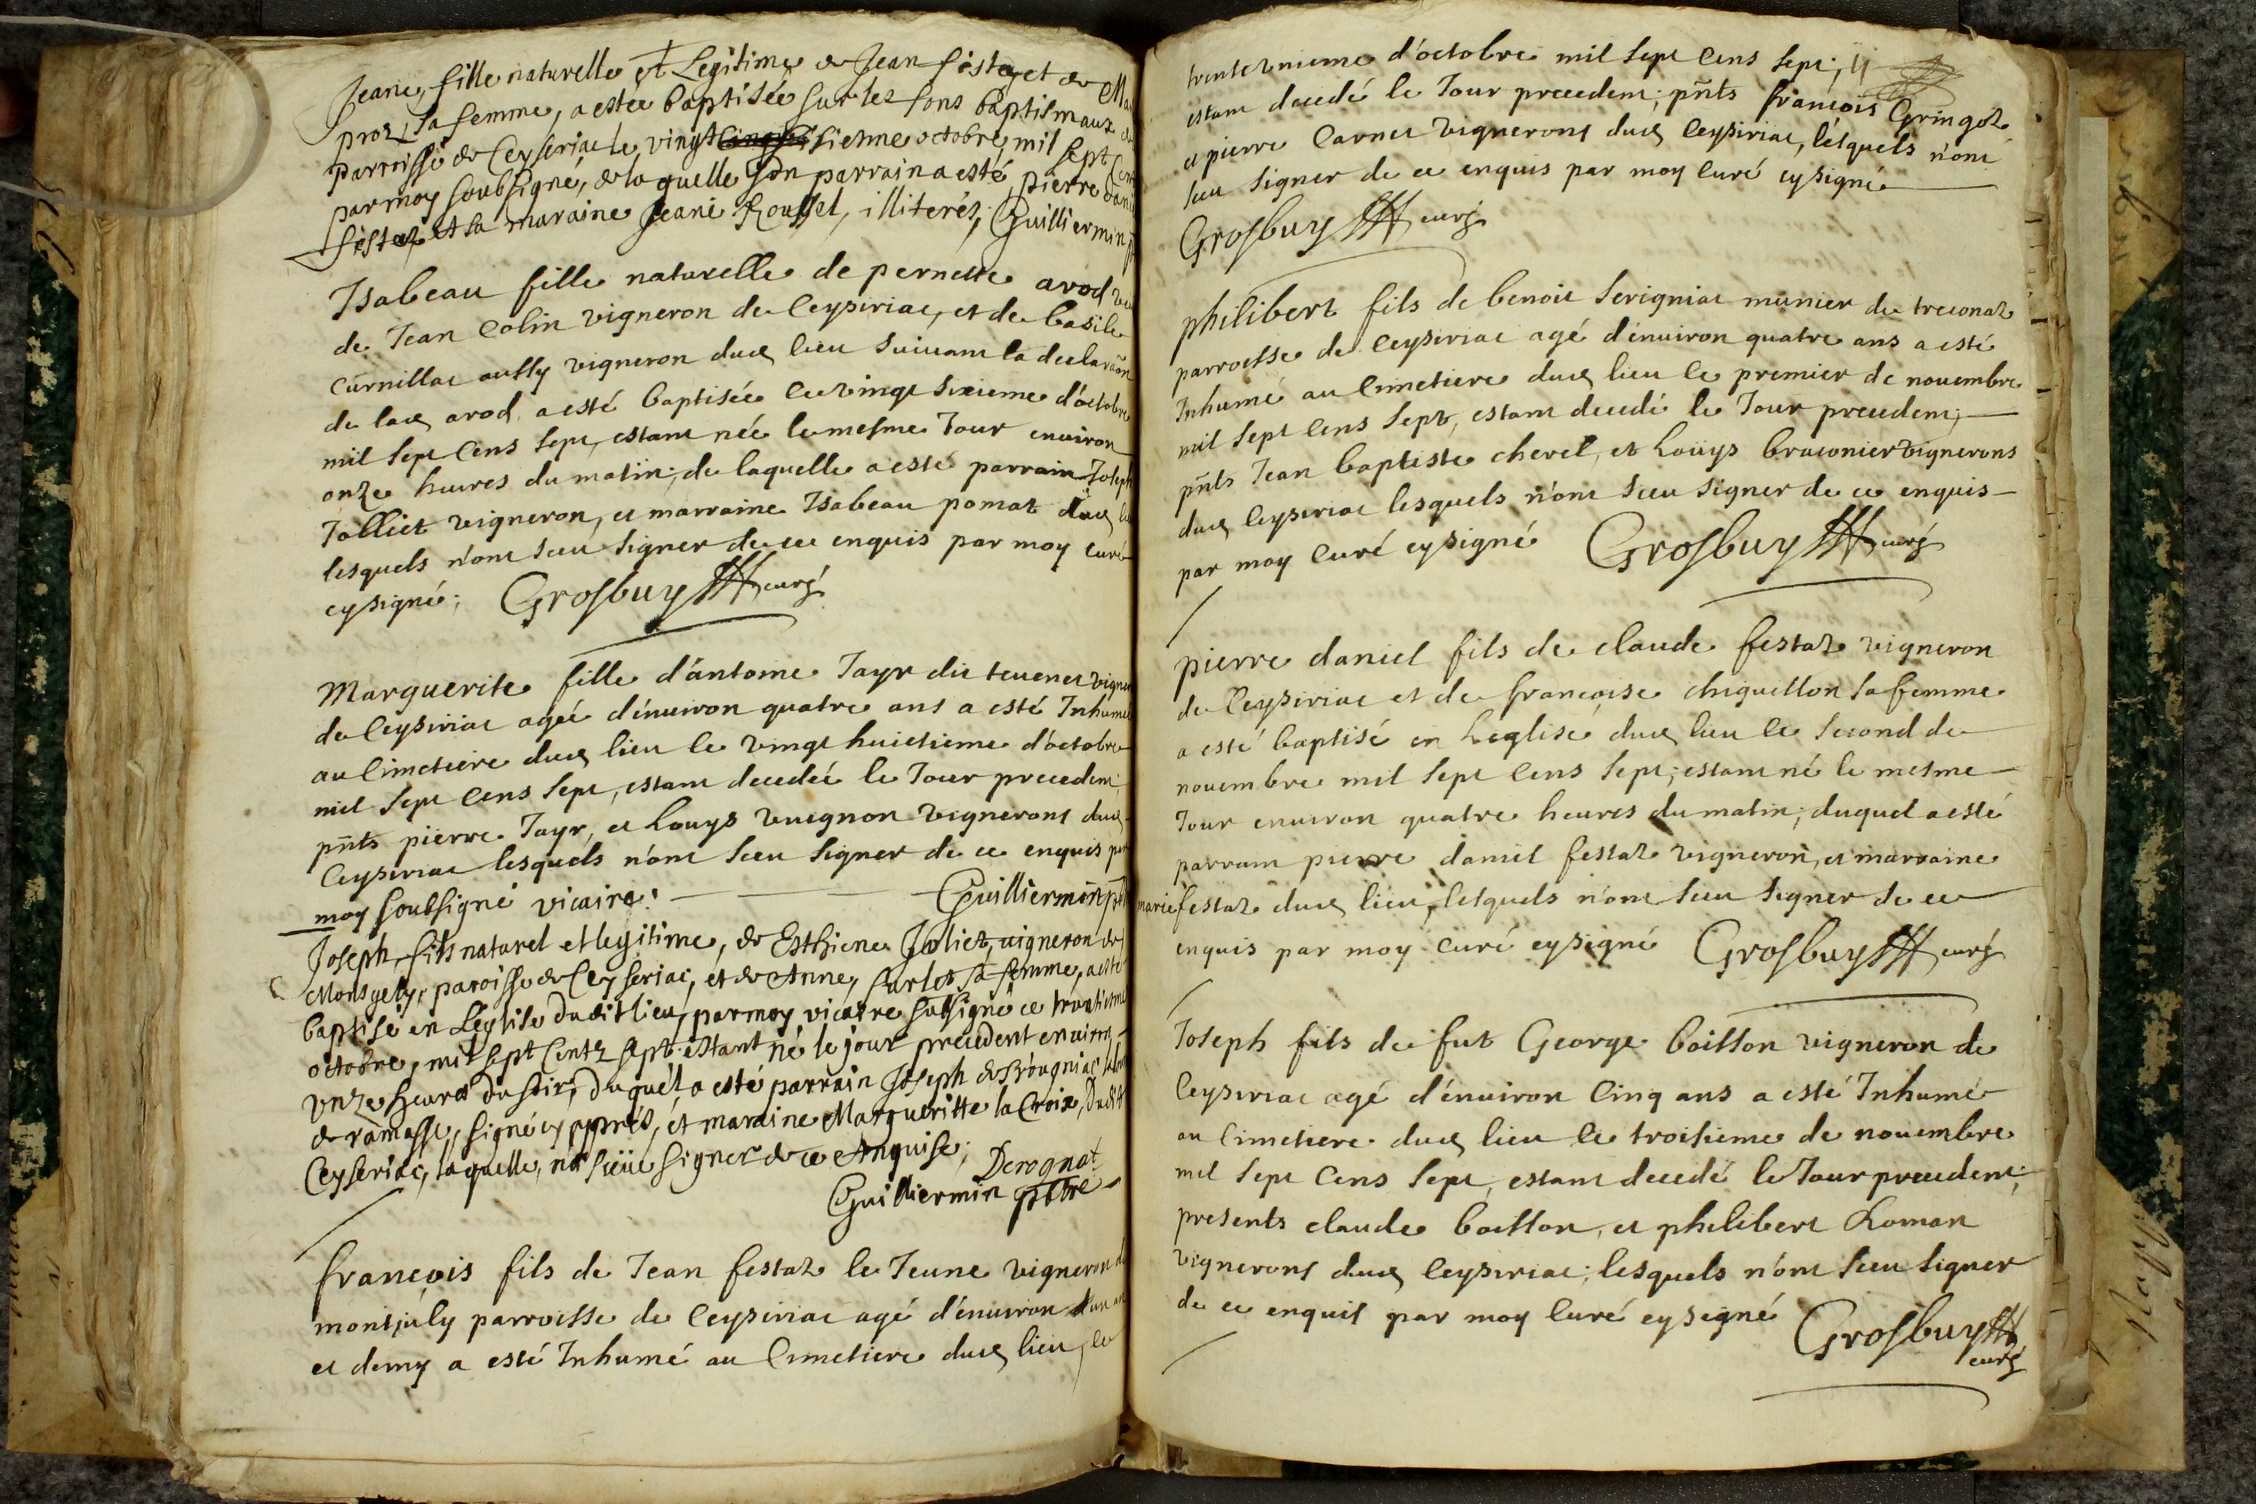 Jeane, fille naturelle et Legitime de Jean festaz et de
proz, sa femme, a estée baptisée sur les fons baptismaux de
parroisse de Ceyseriac le vingt siesme octobre mil sept Cent
par moy soubsigné, de laquelle son parrain a esté, pierre dani
festaz et sa maraine Jeane Roussel, illiterés, Guilliermin
Isabeau fille naturelle de pernette arod
de Jean Colin vigneron de Ceysiriac, et de basile
Curnillac aussy vigneron dud lieu suiuant la declaraõn
de lad arod a esté baptisée ce vingt sixieme d'octobre
mil sept Cens sept, estant née le mesme Jour enuiron
onze heures du matin; de laquelle a esté parrain Joseph
Jolliet vigneron, et marraine Isabeau pomat dud
lesquels n'ont sceu signer de ce enquis par moy curé
cysigné; Grosbuy curé
Marguerite fille d'antoine Jayr dit teuenet
de Ceysiriac agée d'enuiron quatre ans a esté Inhumée
au Cimetiere dud lieu le vingt huictieme d'octobre
mil sept Cens sept, estant decedée le Jour precedent;
pñts pierre Jayr, et Louys vuignon vignerons dud
Ceysiriac lesquels n'ont sceu signer de ce enquis par
moy soubsigné vicaire. Guilliermin
Joseph, fils naturel et legitime, de Esthiene Joliet, uigneron de
Monsgely, paroisse de Ceyseriac, et de Anne, sa femme, a esté
baptisé en L'eglise dudit lieu, par moy vicaire subsigné ce trantiesme
octobre, mil sept Centz sept estant né le jour precedent enuiron
vnze heures du soir, duquel a esté parrain Joseph
de ramasse, signé cy apprés, et maraine Margueritte la Croix, Dudit
Ceyseriac, laquelle, na sceüe signer de ce Anquise; Derognat
Guilliermin pbtre
françois fils de Jean festaz le Jeune vigneron
montjuly parroisse de Ceysiriac agé d'enuiron
et demy a esté Inhumé au Cimetiere dud lieu, le
trentevnieme d'octobre mil sept Cens sept;
estant decedé le Jour precedent; pñts françois Gringoz
et pierre Carnet vignerons dud Ceysiriac, lesquels n'ont
sceu signer de ce enquis par moy Curé cysigné
Grosbuy curé
philibert fils de benoit serigniat munier de treconaz
parroisse de Ceysiriac agé d'enuiron quatre ans a esté
Inhumé au Cimetiere dud lieu le premier de nouembre
mil sept Cens sept, estant decedé le Jour precedent;
pñts Jean baptiste cherel, et Loüys braconier vignerons
dud Ceysiriac lesquels n'ont sceu signer de ce enquis
par moy Curé cysigné Grosbuy curé
pierre daniel fils de claude festaz vigneron
de Ceysiriac et de françoise chiquellon sa femme
a esté baptisé en L'eglise dud lieu le second de
nouembre mil sept Cens sept; estant né le mesme
Jour enuiron quatre heures du matin; duquel a esté
parrain pierre daniel festaz vigneron, et marraine
marie festaz dud lieu, lesquels n'ont sceu signer de ce
enquis par moy curé cysigné Grosbuy curé
Joseph fils de fut George boisson vigneron de
Ceysiriac agé d'enuiron Cinq ans a esté Inhumé
au Cimetiere dud lieu le troisieme de nouembre
mil sept Cens sept, estant decedé le Jour precedent;
presents claude boisson, et philibert Loman
vignerons dud Ceysiriac; lesquels n'ont sceu signer
de ce enquis par moy Curé cysigné Grosbuy
curé